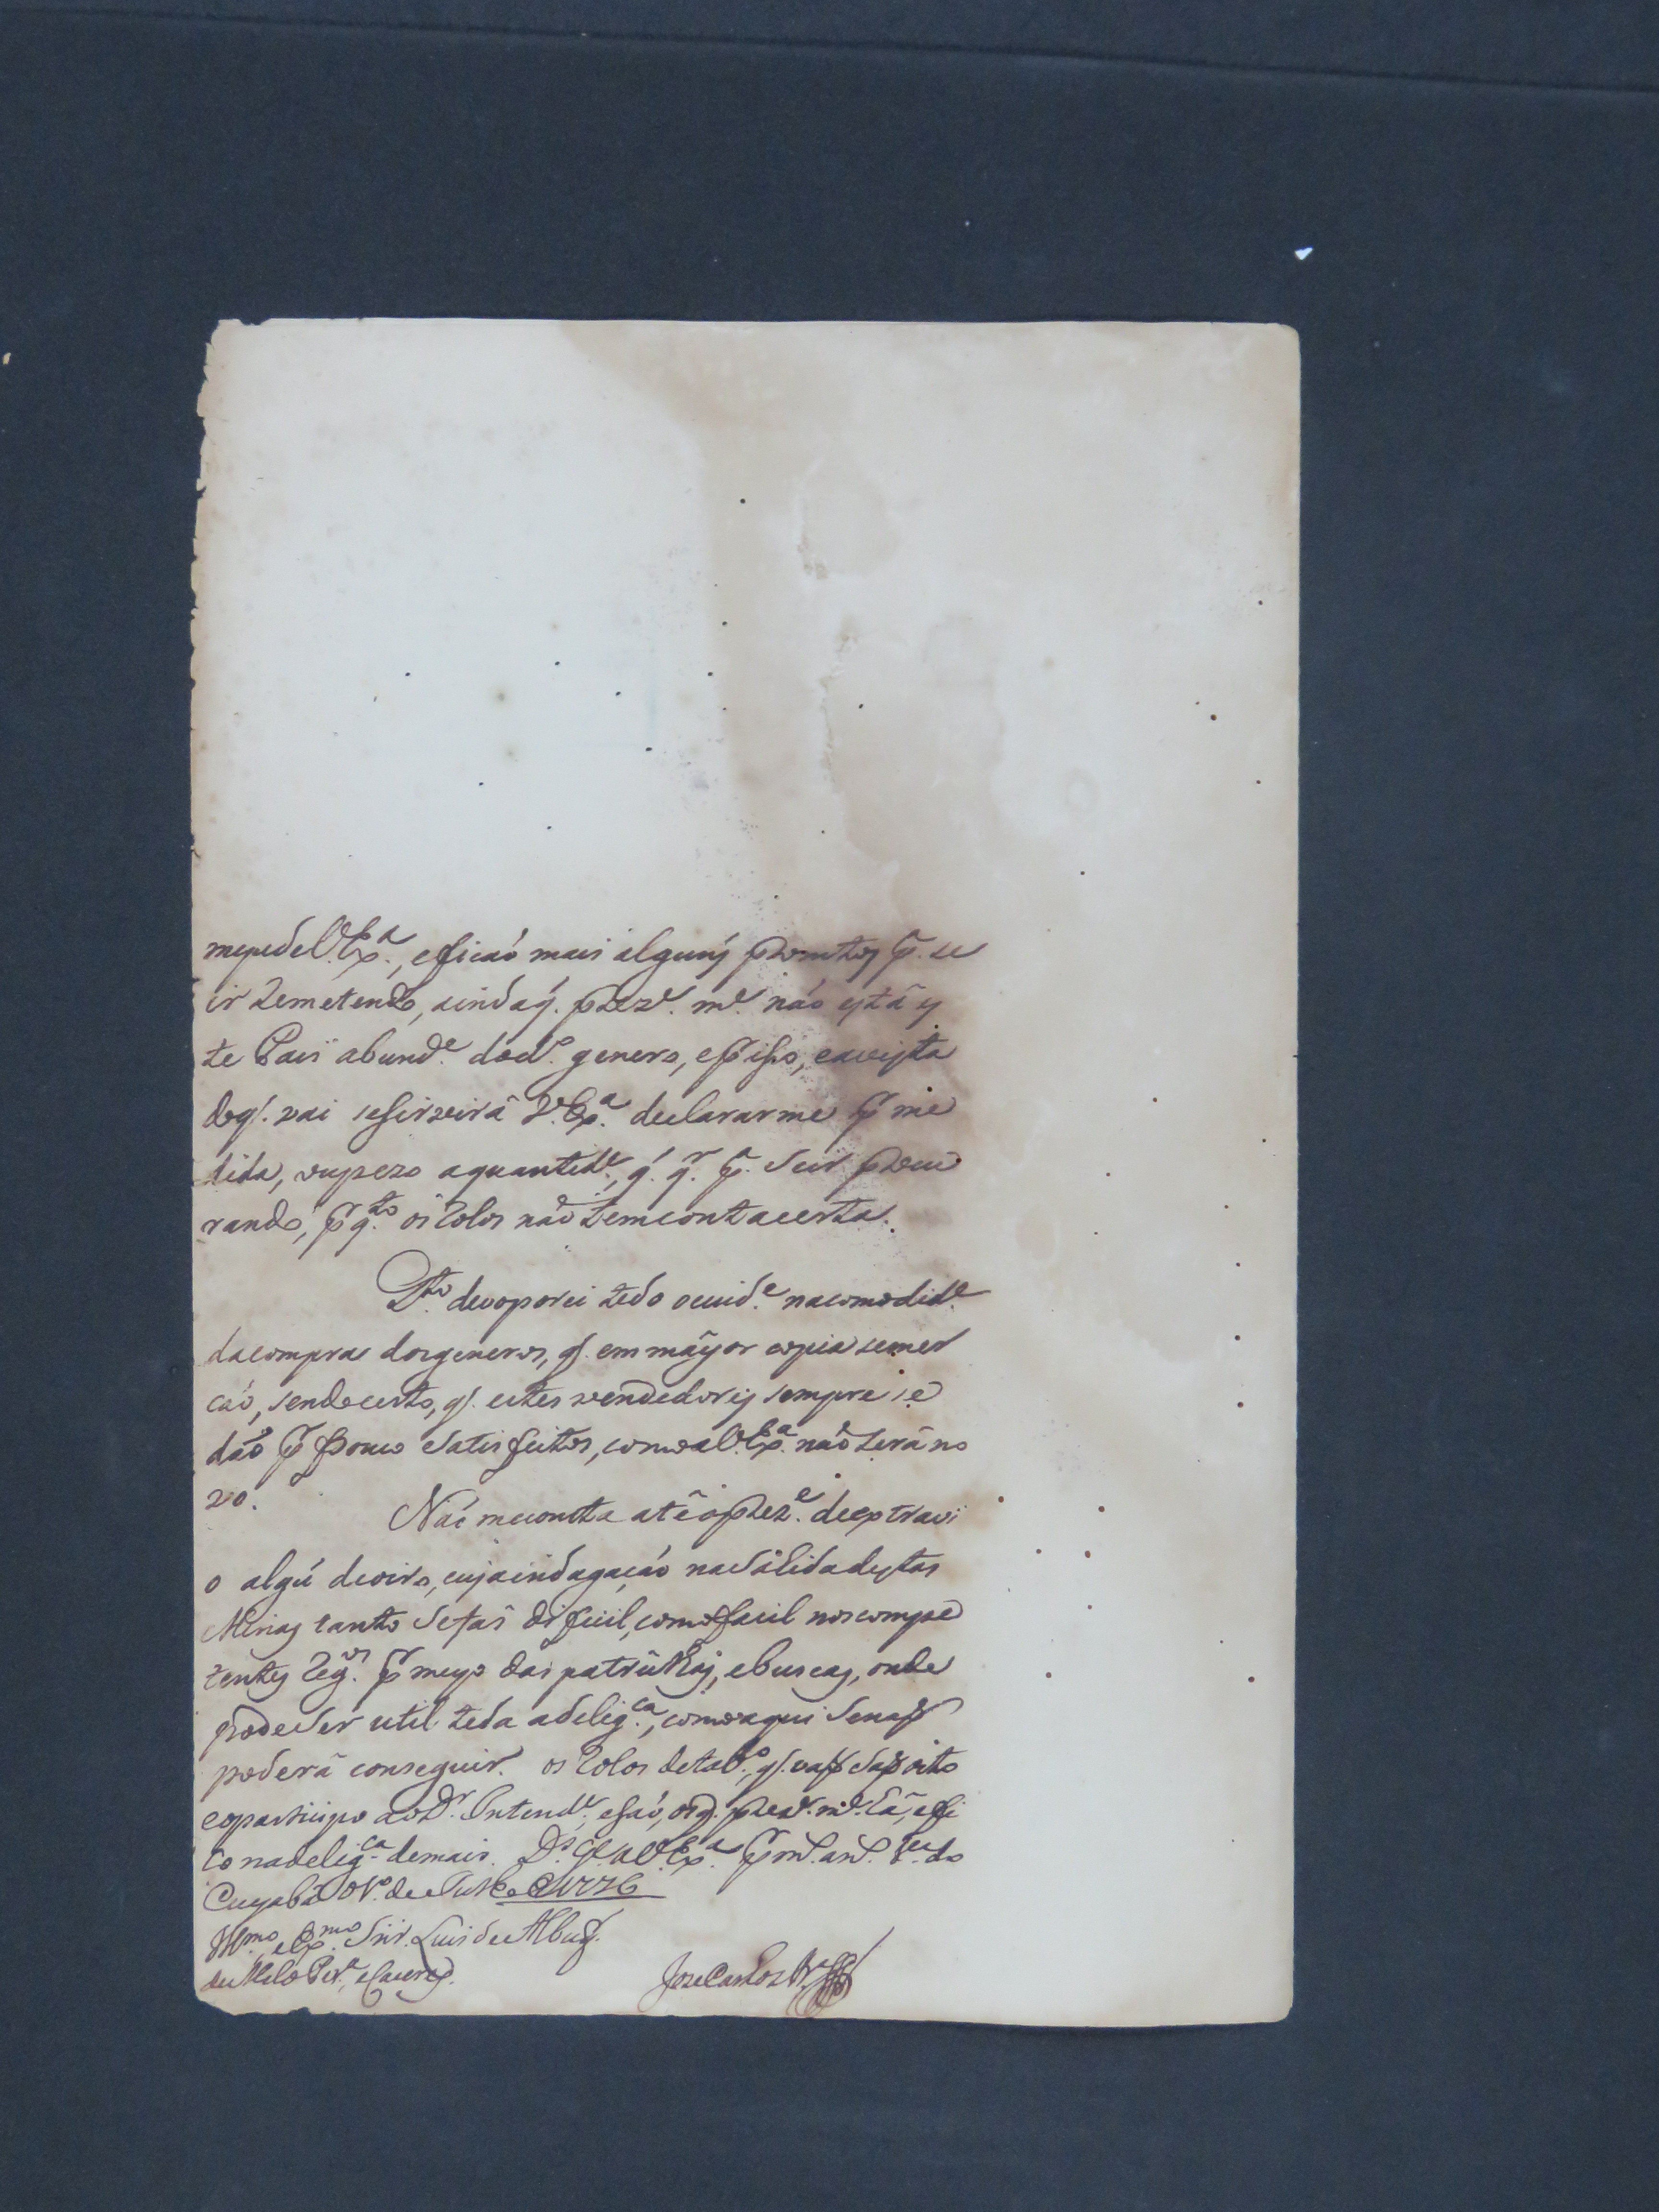 mepede V. Exª., eficaó mais alguñs promtos pª. se
ir Remetendo, aindaq̃. prezte. mte. naó está es
te Pais abunde. dod.º genero, epr. iso, eavista
doq̃. vai seservirá V. Exª. declararme pr. me
dida, oupezo aquantide., q̃. qr. pª. seir procu
rando, pr. q.to os Rolos naó temcontacerta.
D.to deoporei todo ocuide. nacomodide.
dacompra dosgeneros, q̃. em mayor copia semer
caó, sendocerto, q̃. estes vendedores sempre se
daó pr. pouco satisfeitos, como a V. Exª. naó será no
vo.
Naó meconsta atéoprezte. deextravi
o algú deoiro, cujaindagaçaó naSahidadestas
Minas tanto sefas deficil, comofacil noscompe
tentes Regos. pr. meyo das patrulhas, ebuscas, onde
podeser util toda adeligca., comoaqui senaõ
poderá conseguir. os Rolos detabco., q̃. vaõ saõ oito
eoparticipo aoDr. Intende., esaó, osq̃. prezte. mte. há, efi
co nadeligca. demais. Ds. Gde. a V. Exª. pr. ms. ans. Vª. do
Cuyabá de Julho 1776
Illmo., eExmo. Snr. Luis de Albuq̃.
de Mello Perª., eCaceres.
Joze Carlos Prª.